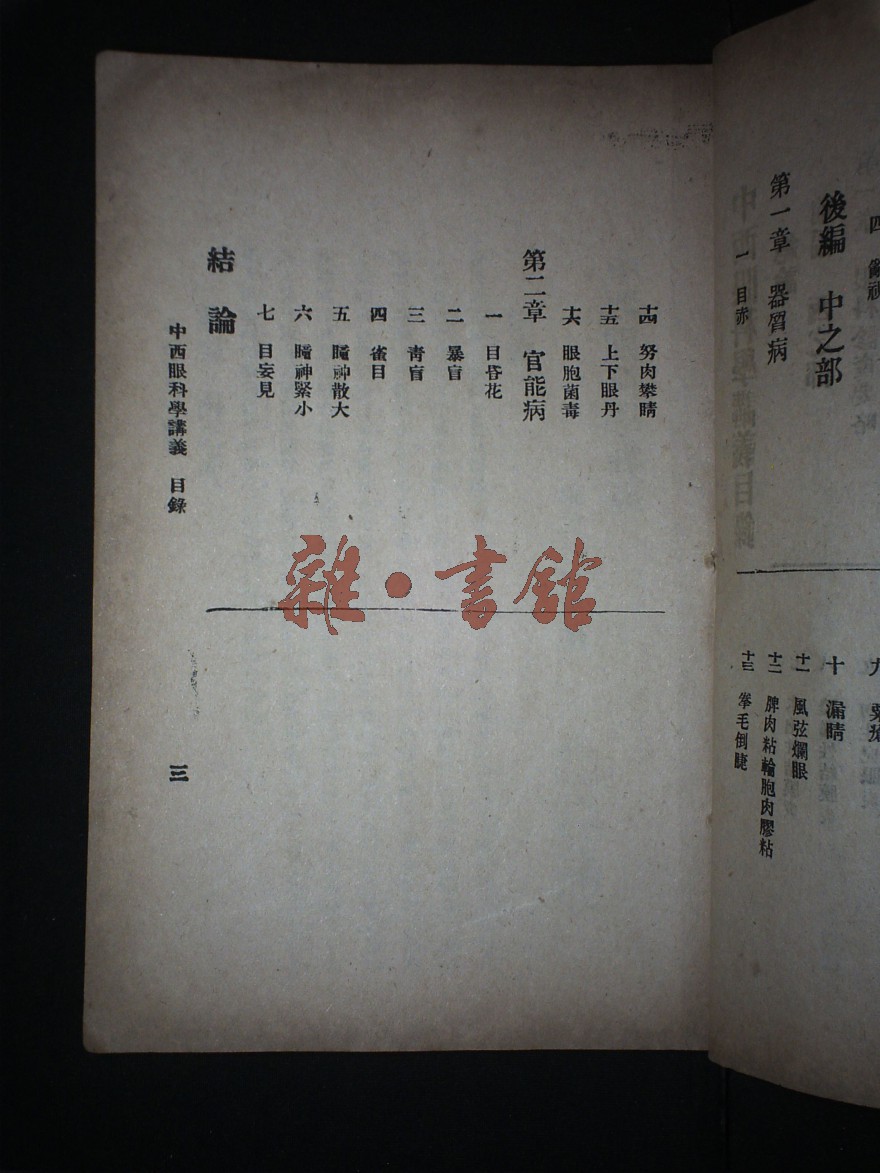 後編 中之部
第一章 器質病
一 目赤
十 漏睛
十一 風弦爛眼
十二 脾肉粘輪胞肉膠粘
十三 拳毛倒睫
十四 努肉攀睛
十五 上下眼丹
十六 眼胞菌毒
第二章 官能病
一 目昏花
二 暴盲
三 靑盲
四 雀目
五 瞳神散大
六 瞳神緊小
七 目妄見
結論
中西眼科學講義 目錄
三
雜·書館